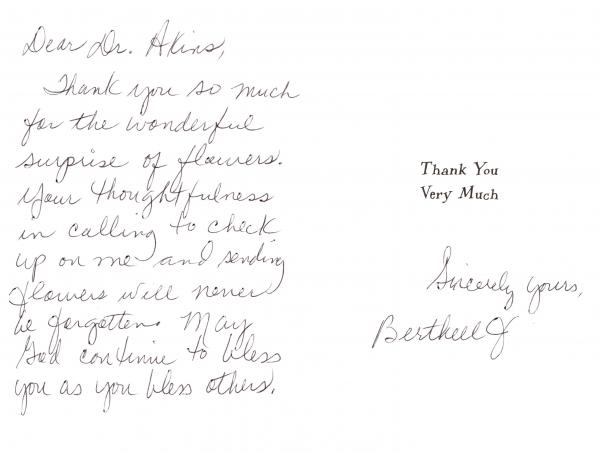 Dear Dr. Akins,
Thank you so much
for the wonderful
surprise of flowers.
Your thoughtfulness
in calling to check
up on me and sending
flowers will never
be forgotten. May
God continue to bless
you as you bless others.
Thank You
Very Much
Sincerely yours,
Berthell J